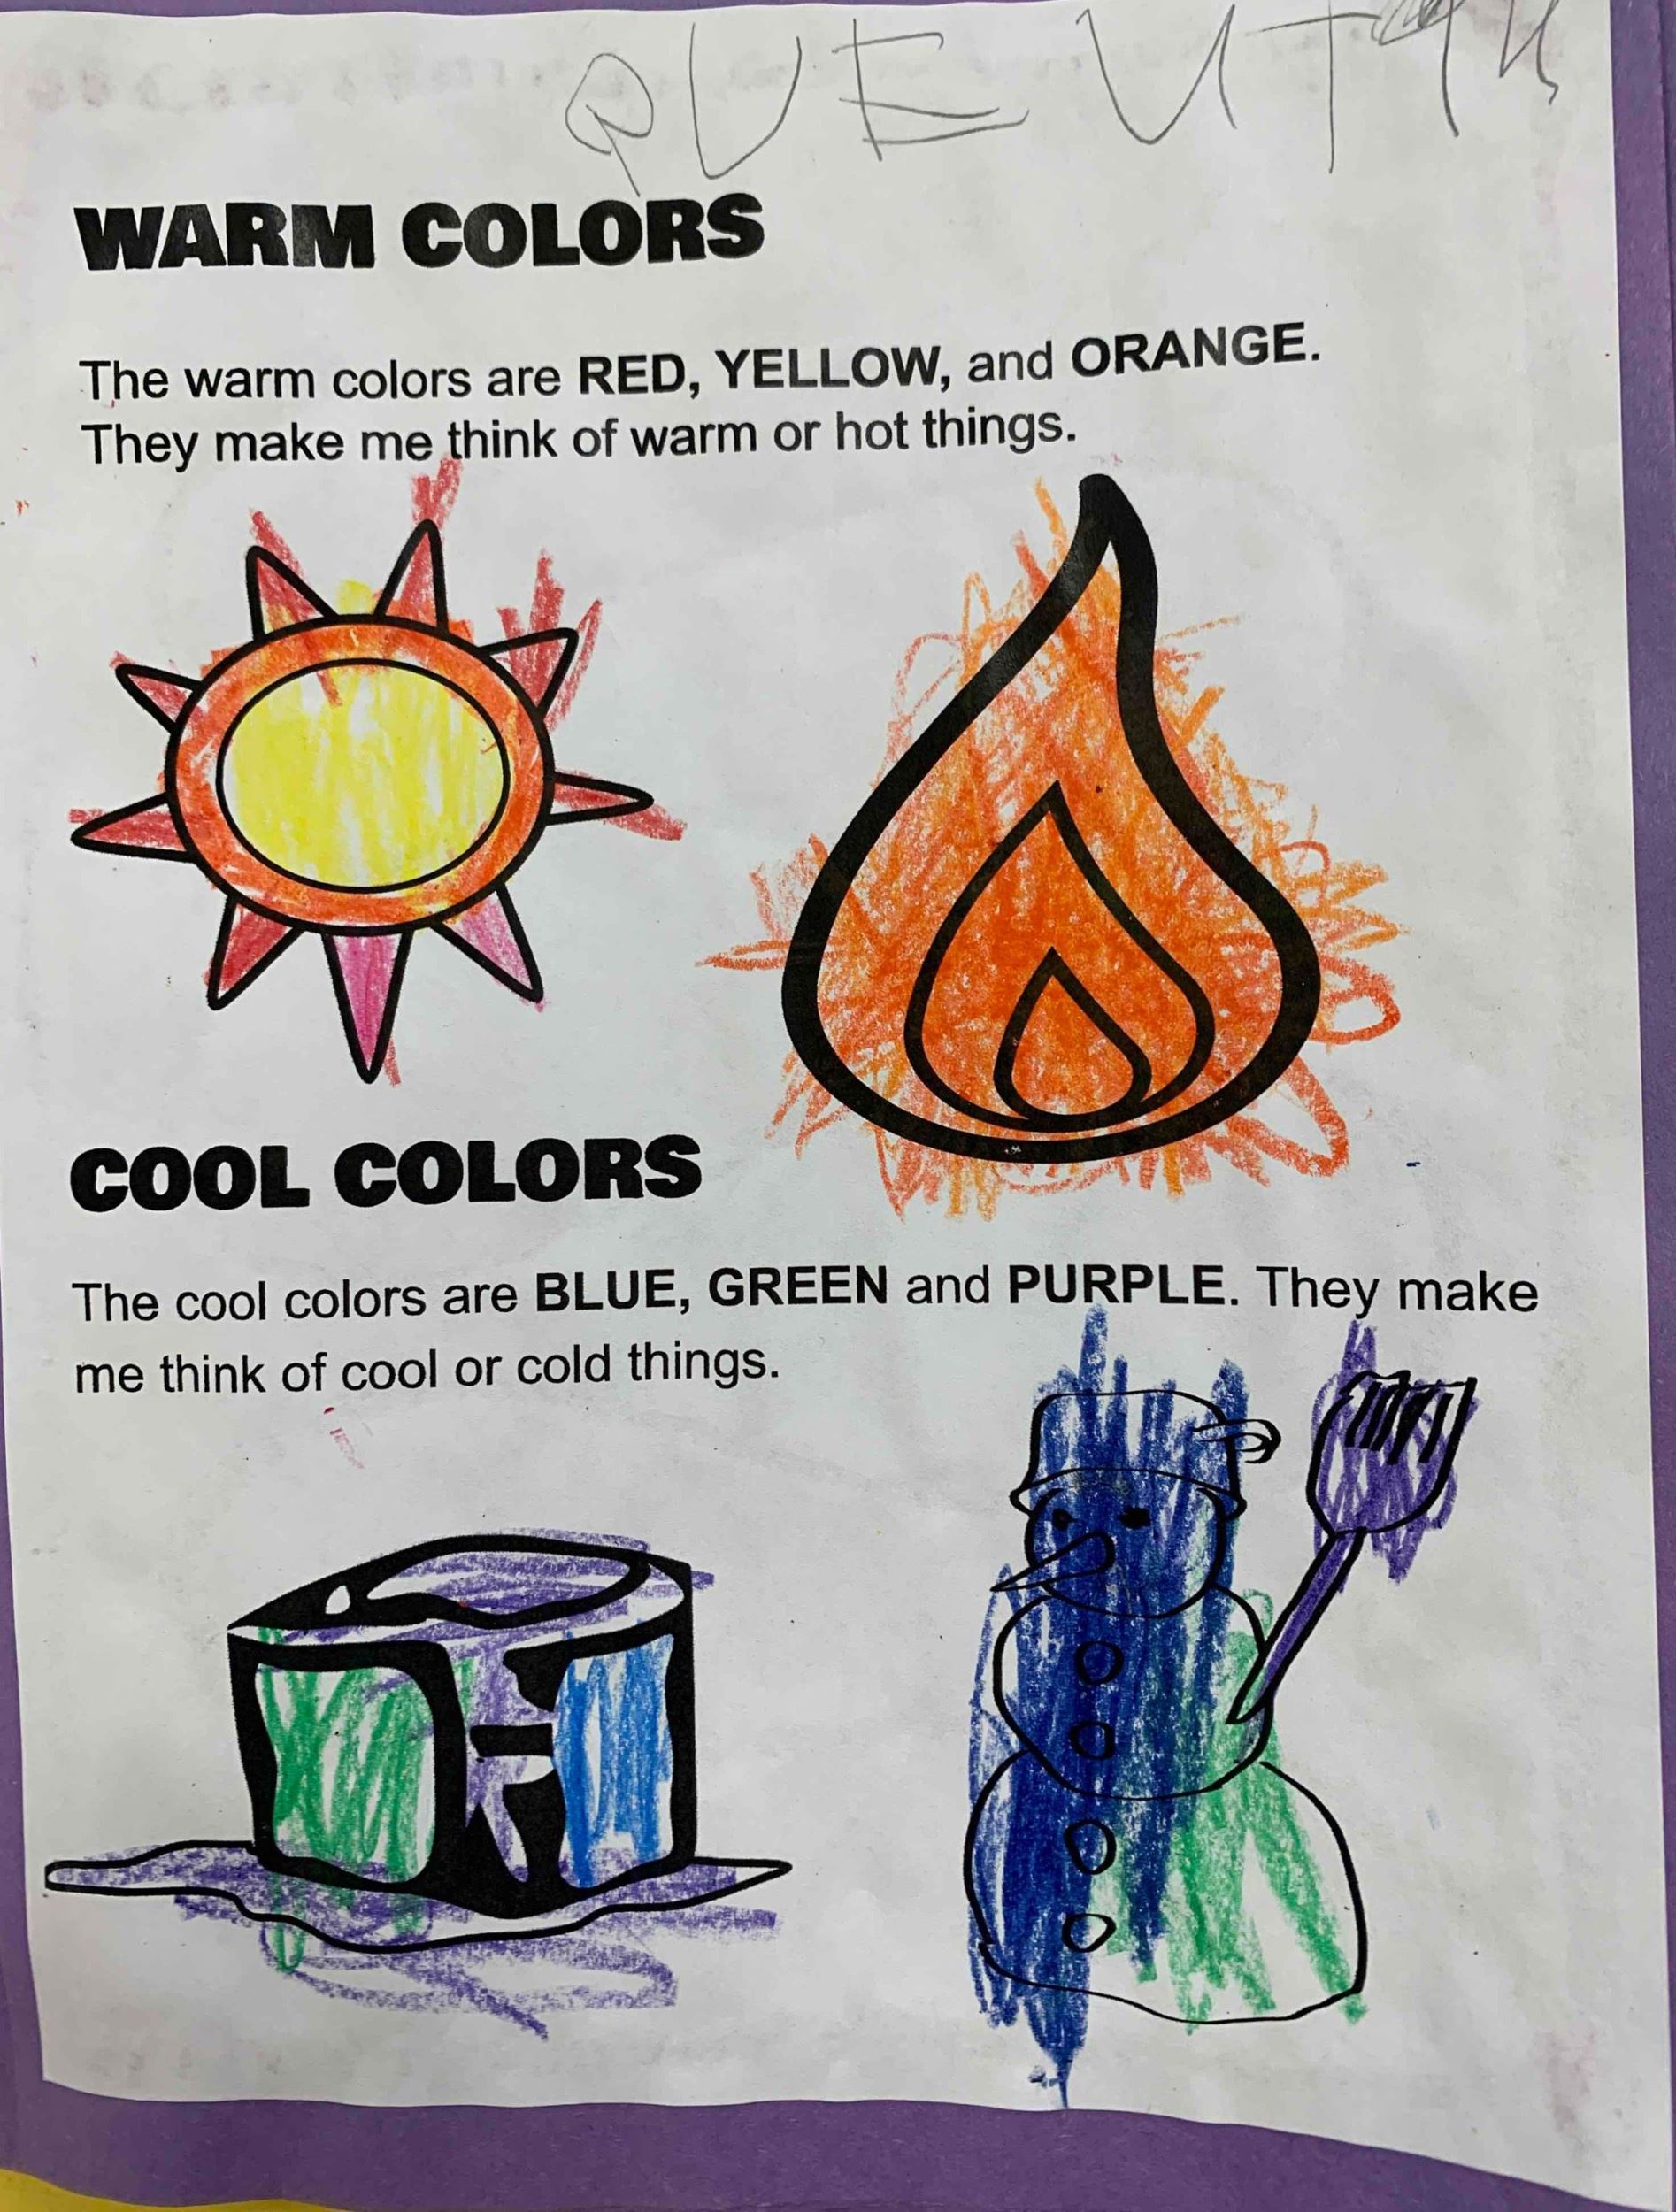 WARM COLORS
The warm colors are RED, YELLOW, and ORANGE.
They make me think of warm or hot things.
COOL COLORS
The cool colors are BLUE, GREEN and PURPLE. They make
me think of cool or cold things.